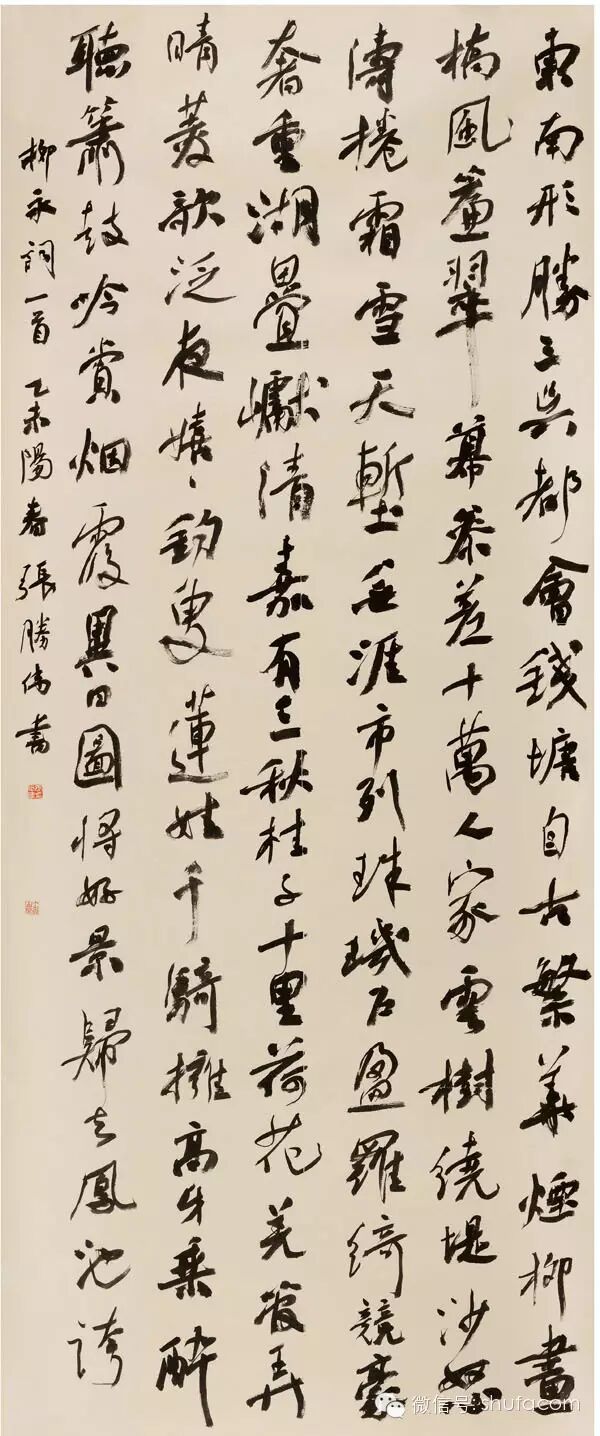 東南形勝三吳都會錢塘自古繁華煙柳畫
橋風簾翠幕參差十萬人家雲樹繞堤沙怒
濤捲霜雪天塹無涯市列珠璣戶盈羅綺競豪
奢重湖疊巘清嘉有三秋桂子十里荷花羌管弄
晴菱歌泛夜嬉〻釣叟蓮娃千騎擁高牙乘醉
聽簫鼓吟賞烟霞異日圖將好景歸去鳳池誇
柳永詞一首 乙未陽春 張勝偉書
微信号: shufacom